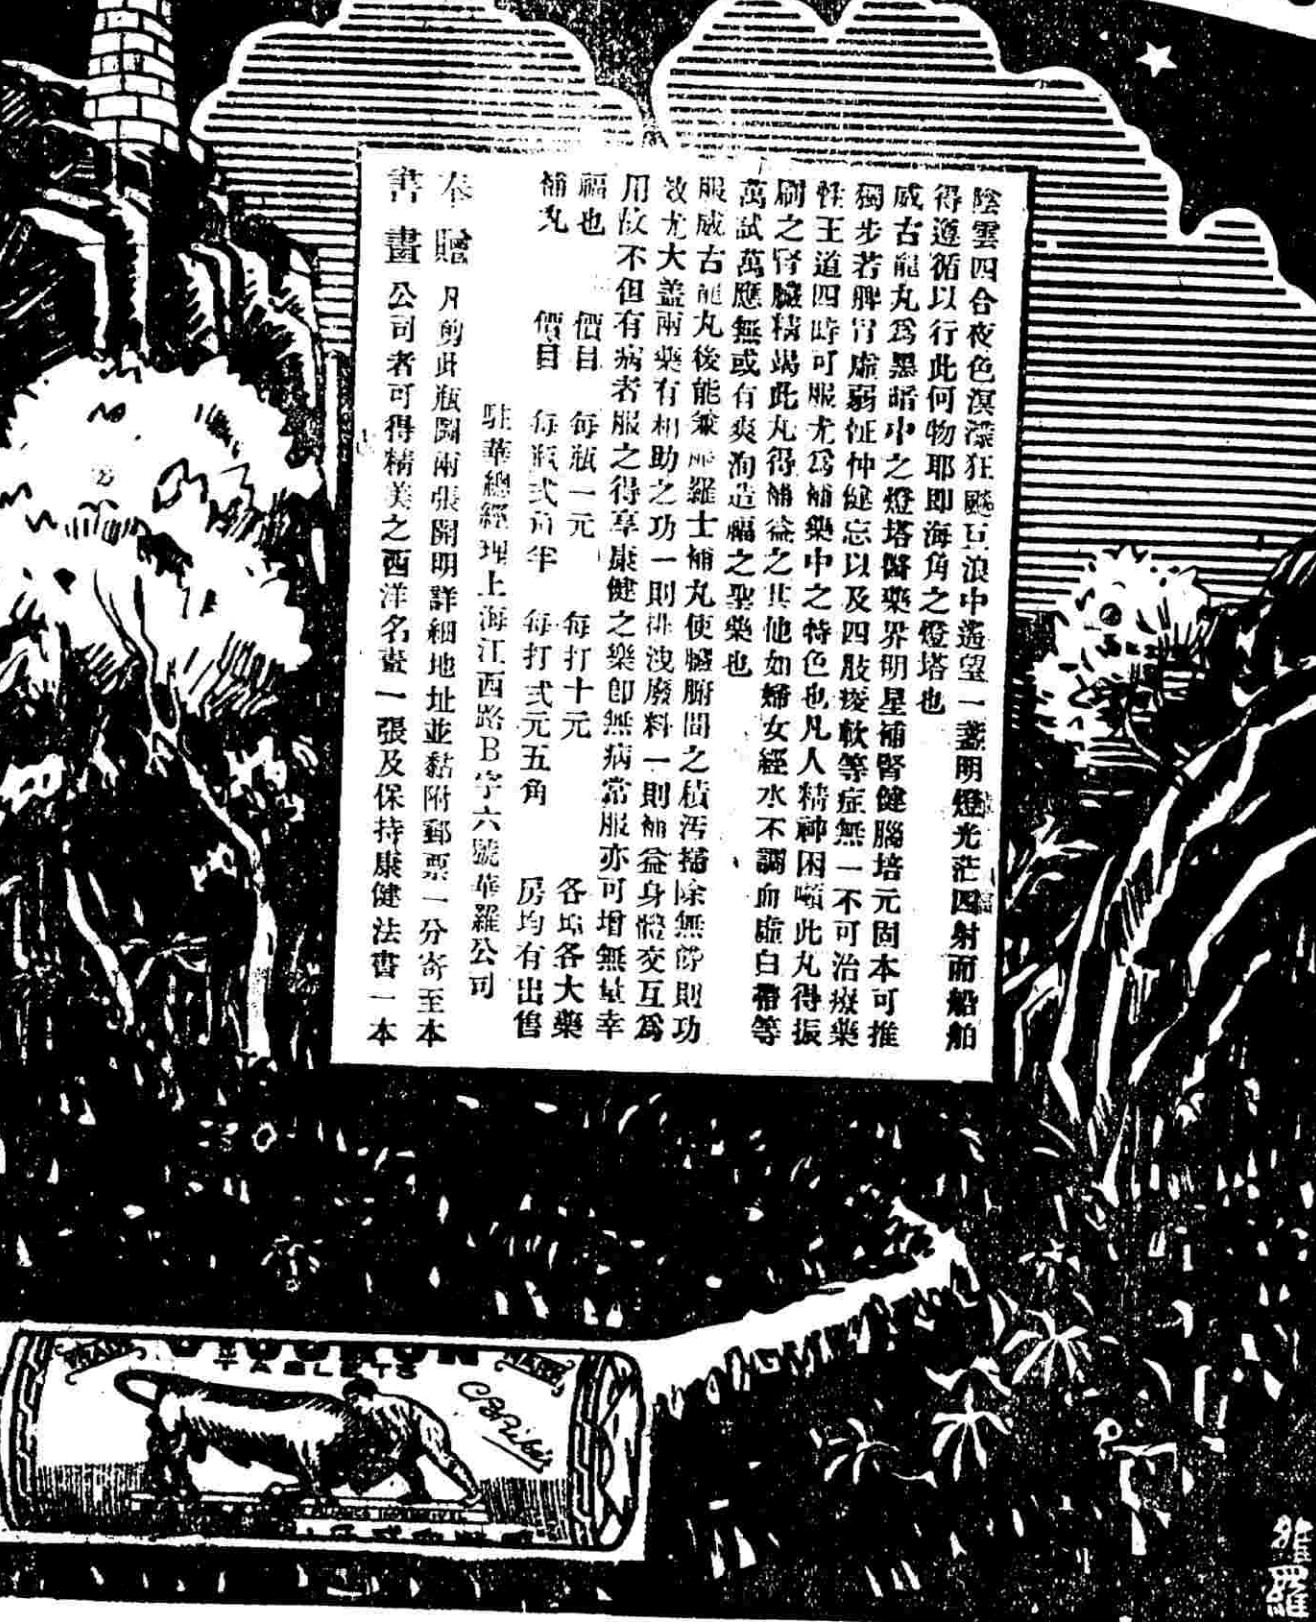 陰雲四合夜色溟濛狂飈巨浪中遙望一盞明燈光茫四射而船舶
得遵循以行此何物耶即海角之燈塔也
威古龍丸爲黑暗中之燈塔醫藥界明星補腎健腦培元固本可推
獨步若脾胃虛弱怔忡健忘以及四肢痠軟等症無一不可治療藥
性王道四時可服尤爲補藥中之特色也凡人精神困頓此丸得振
刷之腎臟精竭此丸得補益之其他如婦女經水不調血虛白帶等
萬試萬應無或有爽洵造福之聖藥也
服威古龍丸後能兼 羅士補丸使臟腑間之積污掃除無餘則功
效尤大蓋兩藥有相助之功一則排洩廢料一則補益身體交互爲
用故不但有病者服之得享康健之樂卽無病常服亦可增無量幸
福也 價目 每瓶一元 每打十元 各埠各大藥
補丸 價目 每瓶式角半 每打式元五角 房均有出售
駐華總經理上海江西路B字六號華羅公司
奉贈 凡剪此瓶圖兩張開明詳細地址並黏附郵票一分寄至本
書畫 公司者可得精美之西洋名畫一張及保持康健法書一本
TABLETS
羅